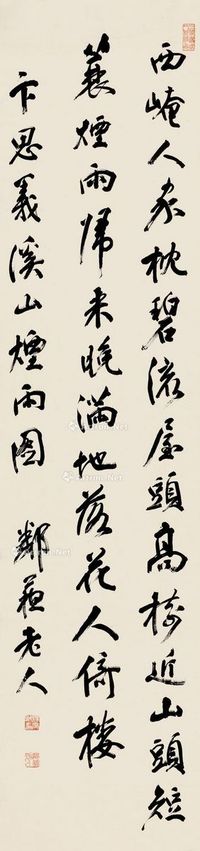 西崦人家枕碧流屋頭高樹近山頭短
蓑煙雨歸来晚滿地落花人倚樓
卞思義溪山煙雨圖 鄰蘇老人